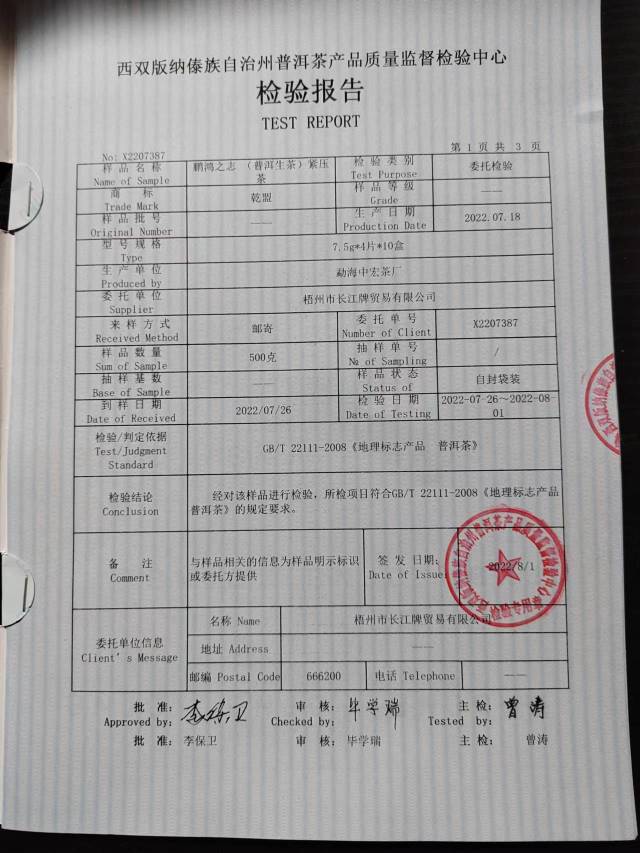 西双版纳傣族自治州普洱茶产品质量监督检验中心
检验报告
TEST REPORT
No: X2207387 第 1 页 共 3 页
样品名称 鹏鸿之志 (普洱生茶) 紧压茶 检验类别 委托检验
Name of Sample Test Purpose
商 标 乾盟 样品等级 ——
Trade Mark Grade
样品批号 —— 生产日期 2022.07.18
Original Number Production Date
型号规格 7.5g*4片*10盒
Type
生产单位 勐海中宏茶厂
Produced by
委托单位 梧州市长江牌贸易有限公司
Supplier
来样方式 邮寄 委托单号 X2207387
Received Method Number of Client
样品数量 500克 抽样单号 /
Sum of Sample № of Sampling
抽样基数 —— 样品状态 自封袋装
Base of Sample Status of
到样日期 2022/07/26 检验日期 2022-07-26~2022-08-01
Date of Received Date of Testing
检验/判定依据 GB/T 22111-2008《地理标志产品 普洱茶》
Test/Judgment
Standard
检验结论 经对该样品进行检验，所检项目符合GB/T 22111-2008《地理标志产品
Conclusion 普洱茶》的规定要求。
备 注 与样品相关的信息为样品明示标识 签发日期: 2022/8/1
Comment 或委托方提供 Date of Issue:
委托单位信息 名称 Name 梧州市长江牌贸易有限公司
Client's Message 地址 Address ——
邮编 Postal Code 666200 电话 Telephone ——
批 准: 李保卫 审 核: 毕学瑞 主 检: 曾涛
Approved by: Checked by: Tested by:
批 准: 李保卫 审 核: 毕学瑞 主 检: 曾涛